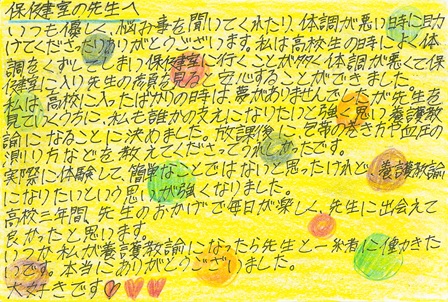 保健室の先生へ
いつも優しく、悩み事を聞いてくれたり、体調が悪い時に助
けてくださったりありがとうございます。私は高校生の時によく体
調をくずしてしまい保健室に行くことが多く体調が悪くて保
健室に入り先生の顔を見ると安心することができました。
私は、高校に入ったばかりの時は、夢がありませんでしたが先生を
見ていくうちに、私も誰かの支えになりたいと強く思い養護教
諭になることに決めました。放課後に包帯のまき方や血圧の
測り方などを教えてくださってうれしかったです。
実際に体験して、簡単なことではないと思ったけれど、養護教諭
になりたいという思いが強くなりました。
高校三年間、先生のおかげで毎日が楽しく、先生に出会えて
良かったと思います。
いつか私が養護教諭になったら先生と一緒に働きた
いです。本当にありがとうございました。
大好きです♡♥♥